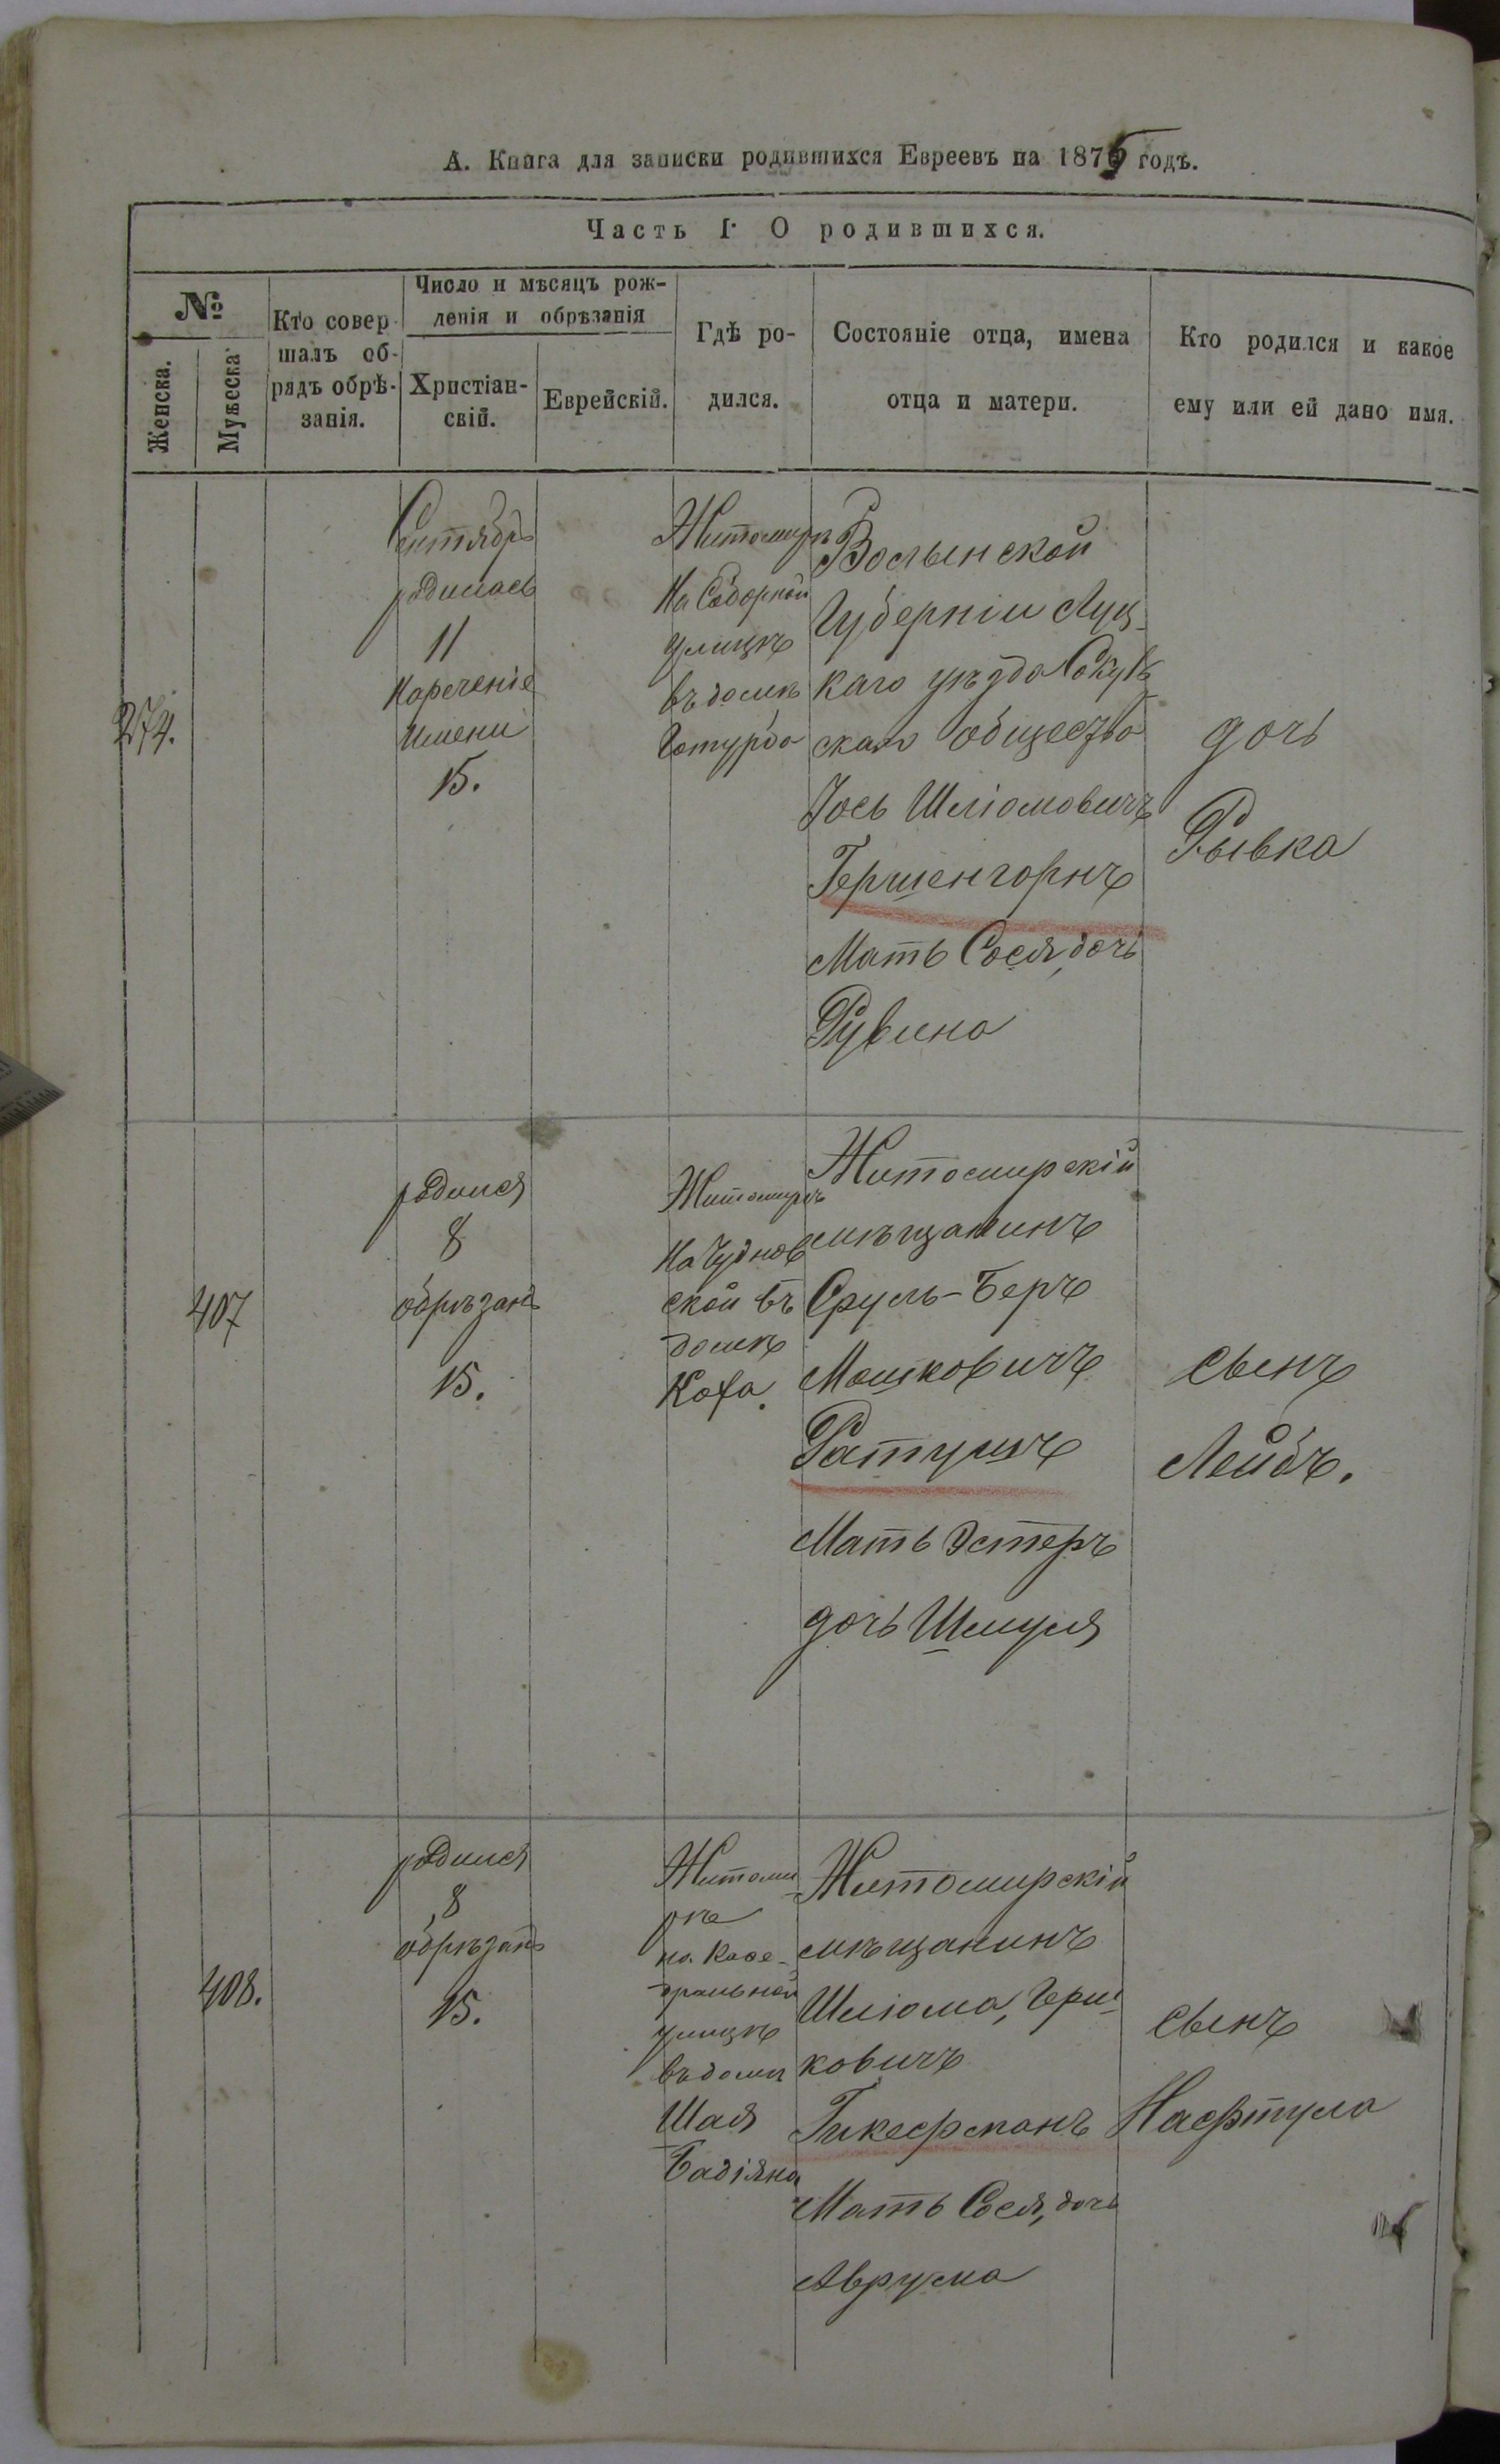 А. Книга для записки родившихся Евреевъ на 1875 годъ.
Часть I. О родившихся.
№
Женска.
Мужеска
Кто совер-
шалъ об-
рядъ обрѣ-
занія.
Число и мѣсяцъ рож-
денія и обрѣзанія
Христіан-
скій.
Еврейскій.
Гдѣ ро-
дился.
Состояніе отца, имена
отца и матери.
Кто родился и какое
ему или ей дано имя.
274.
Сентябрь
родилась
11
Нареченіе
Имени
15.
Житомиръ
На Соборной
улицѣ
въ домѣ
Волынской
Губерніи Луц-
каго уѣзда
скаго общества
Іось Шліомовичъ
Гершенгорнъ
Мать Сося, дочь
Рувина
дочь
Рывка
407
родился
8
обрѣзанъ
15.
Житомиръ
На Чуднов
ской въ
домѣ
Житомирскій
мѣщанинъ
Сруль-Беръ
Мошковичъ
Ратушъ
Мать Эстеръ
дочь Шмуля
сынъ
Лейбъ.
408.
родился
8
обрѣзанъ
15.
Житоми
рѣ
на Каѳе-
дральной
улицѣ
въ домѣ
Шая
Житомирскій
мѣщанинъ
Шліома, Герш-
ковичъ
Гикефманъ
Мать Сося, дочь
Аврума
сынъ
Нафтула